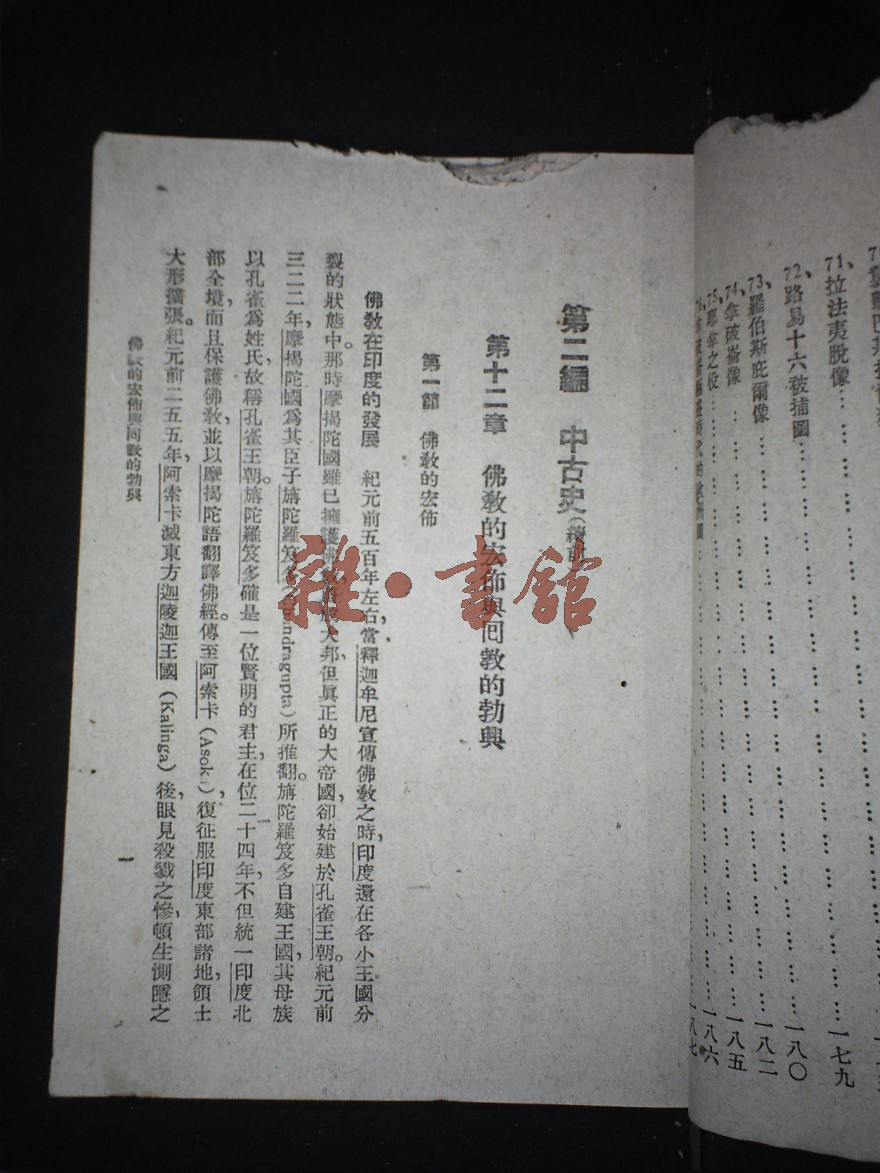 71、拉法夷脫像 … … … … … … … … … … 一七九
72、路易十六被捕圖 … … … … … … … … … 一八〇
73、羅伯斯庇爾像 … … … … … … … … … … 一八二
74、拿破崙像 … … … … … … … … … … … 一八五
75、耶拿之役 … … … … … … … … … … … 一八六
一八七
第二編 中古史(續前)
第十二章 佛敎的宏佈與回敎的勃興
第一節 佛敎的宏佈
佛敎在印度的發展 紀元前五百年左右,當釋迦牟尼宣傳佛敎之時,印度還在各小王國分
裂的狀態中。那時摩揭陀國雖已擁護佛 大邦,但眞正的大帝國,卻始建於孔雀王朝。紀元前
三二二年,摩揭陀國爲其臣子旃陀羅笈多(Chandragupta)所推翻。旃陀羅笈多自建王國,其母族
以孔雀爲姓氏,故稱孔雀王朝。旃陀羅笈多確是一位賢明的君主,在位二十四年,不但統一印度北
部全境,而且保護佛敎,並以摩揭陀語翻譯佛經。傳至阿索卡(Asoka),復征服印度東部諸地,領土
大形擴張。紀元前二五五年,阿索卡滅東方迦陵迦王國(Kalinga)後,眼見殺戮之慘,頓生惻隱之
佛敎的宏佈與回敎的勃興
一
雜·書館